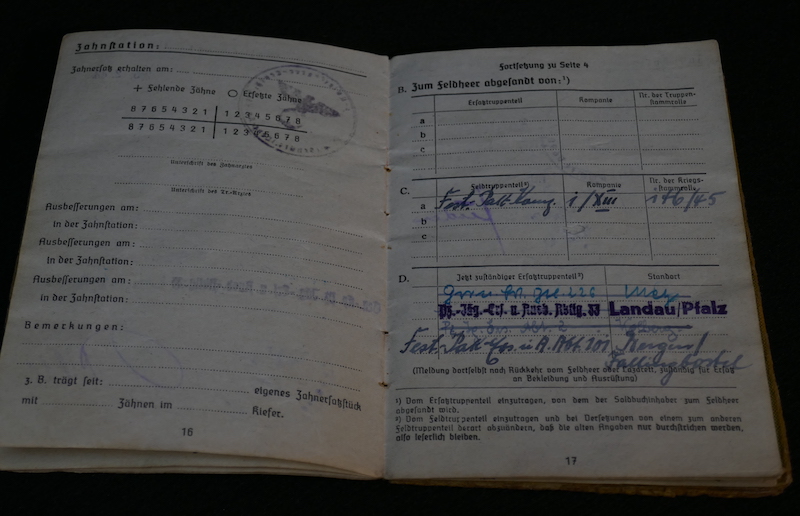 Zahnstation:
Zahnersatz erhalten am:
+ Fehlende Zähne O Ersetzte Zähne
8 7 6 5 4 3 2 1 | 1 2 3 4 5 6 7 8
8 7 6 5 4 3 2 1 | 1 2 3 4 5 6 7 8
Unterschrift des Zahnarztes
Unterschrift des Tr.-Arztes
Ausbesserungen am:
in der Zahnstation:
Ausbesserungen am:
in der Zahnstation:
Ausbesserungen am:
in der Zahnstation:
Bemerkungen:
z. B. trägt seit: eigenes Zahnersatzstück
mit Zähnen im Kiefer.
16
Fortsetzung zu Seite 4
B. Zum Feldheer abgesandt von:¹)
Ersatztruppenteil Kompanie Nr. der Truppen-
stammrolle
a
b
c
C. Feldtruppenteil²) Kompanie Nr. der Kriegs-
stammrolle
a Fest. Pak 1/XIII 146/45
b
c
D. Jetzt zuständiger Ersatztruppenteil²) Standort
Metz
Pz.-Jäg.-Ers. u. Ausb. Abtlg. 33 Landau/Pfalz
Fest. Pak Ers. u. A. Abt. 101 Bergen/
Fallingbostel
(Meldung dortselbst nach Rückkehr vom Feldheer oder Lazarett, zuständig für Ersatz
an Bekleidung und Ausrüstung)
¹) Vom Ersatztruppenteil einzutragen, von dem der Soldbuchinhaber zum Feldheer
abgesandt wird.
²) Vom Feldtruppenteil einzutragen und bei Versetzungen von einem zum anderen
Feldtruppenteil derart abzuändern, daß die alten Angaben nur durchstrichen werden,
also leserlich bleiben.
17